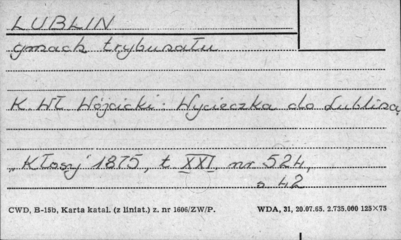 LUBLIN
gmach trybunału
K. Wł Wójcicki: Wycieczka do Lublina
„Kłosy" 1875, t XXI, nr. 524,
s. 42
CWD, B-15b, Karta katal. (z liniat.) z. nr 1606/ZW/P. WDA, 31, 20.07.65. 2.735.000 125×75